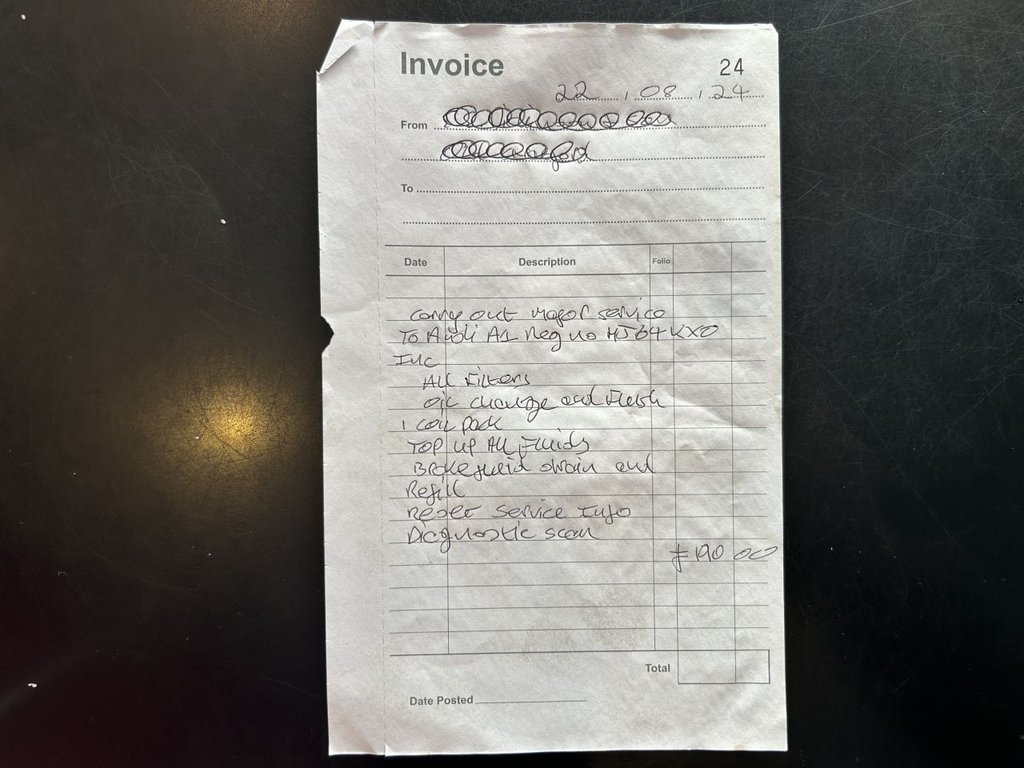 Invoice
24
22 , 08 , 24
From
To
Date Description Folio
carry out major service
To Audi A1 Reg no HJ64 KXO
Inc
All Filters
oil change and Flush
1 coil pack
Top up All Fluids
Brake fluid drain and
Refill
Reset service Info
Diagnostic scan
£190 00
Total
Date Posted